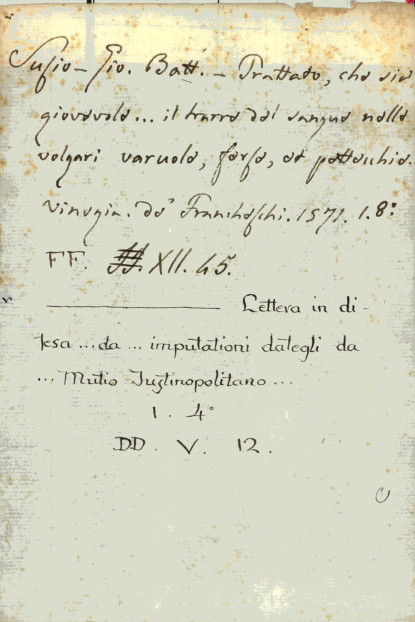 Susio – Gio. Batt. – Trattato, che sia
giovevole... il trarre del sangue nelle
volgari varuole, ferse, et pettechie.
Vinegia. de' Francheschi. 1571. 1. 8º
FF. XII. 45.
Lettera in di-
fesa ... da ... imputationi dategli da
... Mutio Iustinopolitano ...
1. 4º
DD. V. 12.